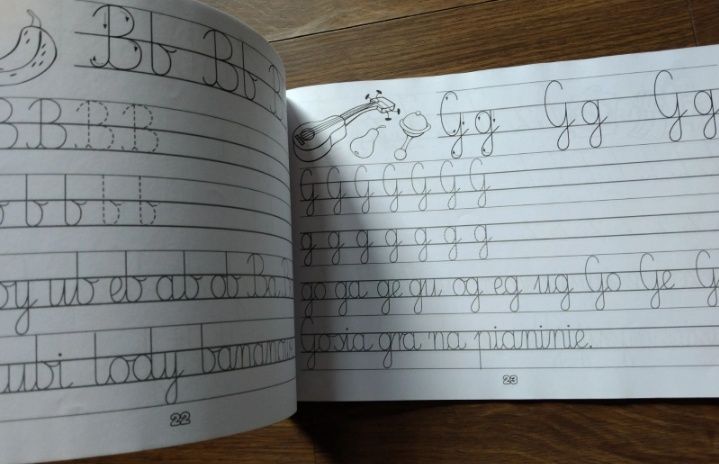 Bb Bb
B B B B
b b b b
ub eb ab ob Ba
lody bananowe
22
Gg Gg Gg
G G G G G G G
g g g g g g g
go ga ge gu og eg ug Go Ge G
Gosia gra na pianinie.
23